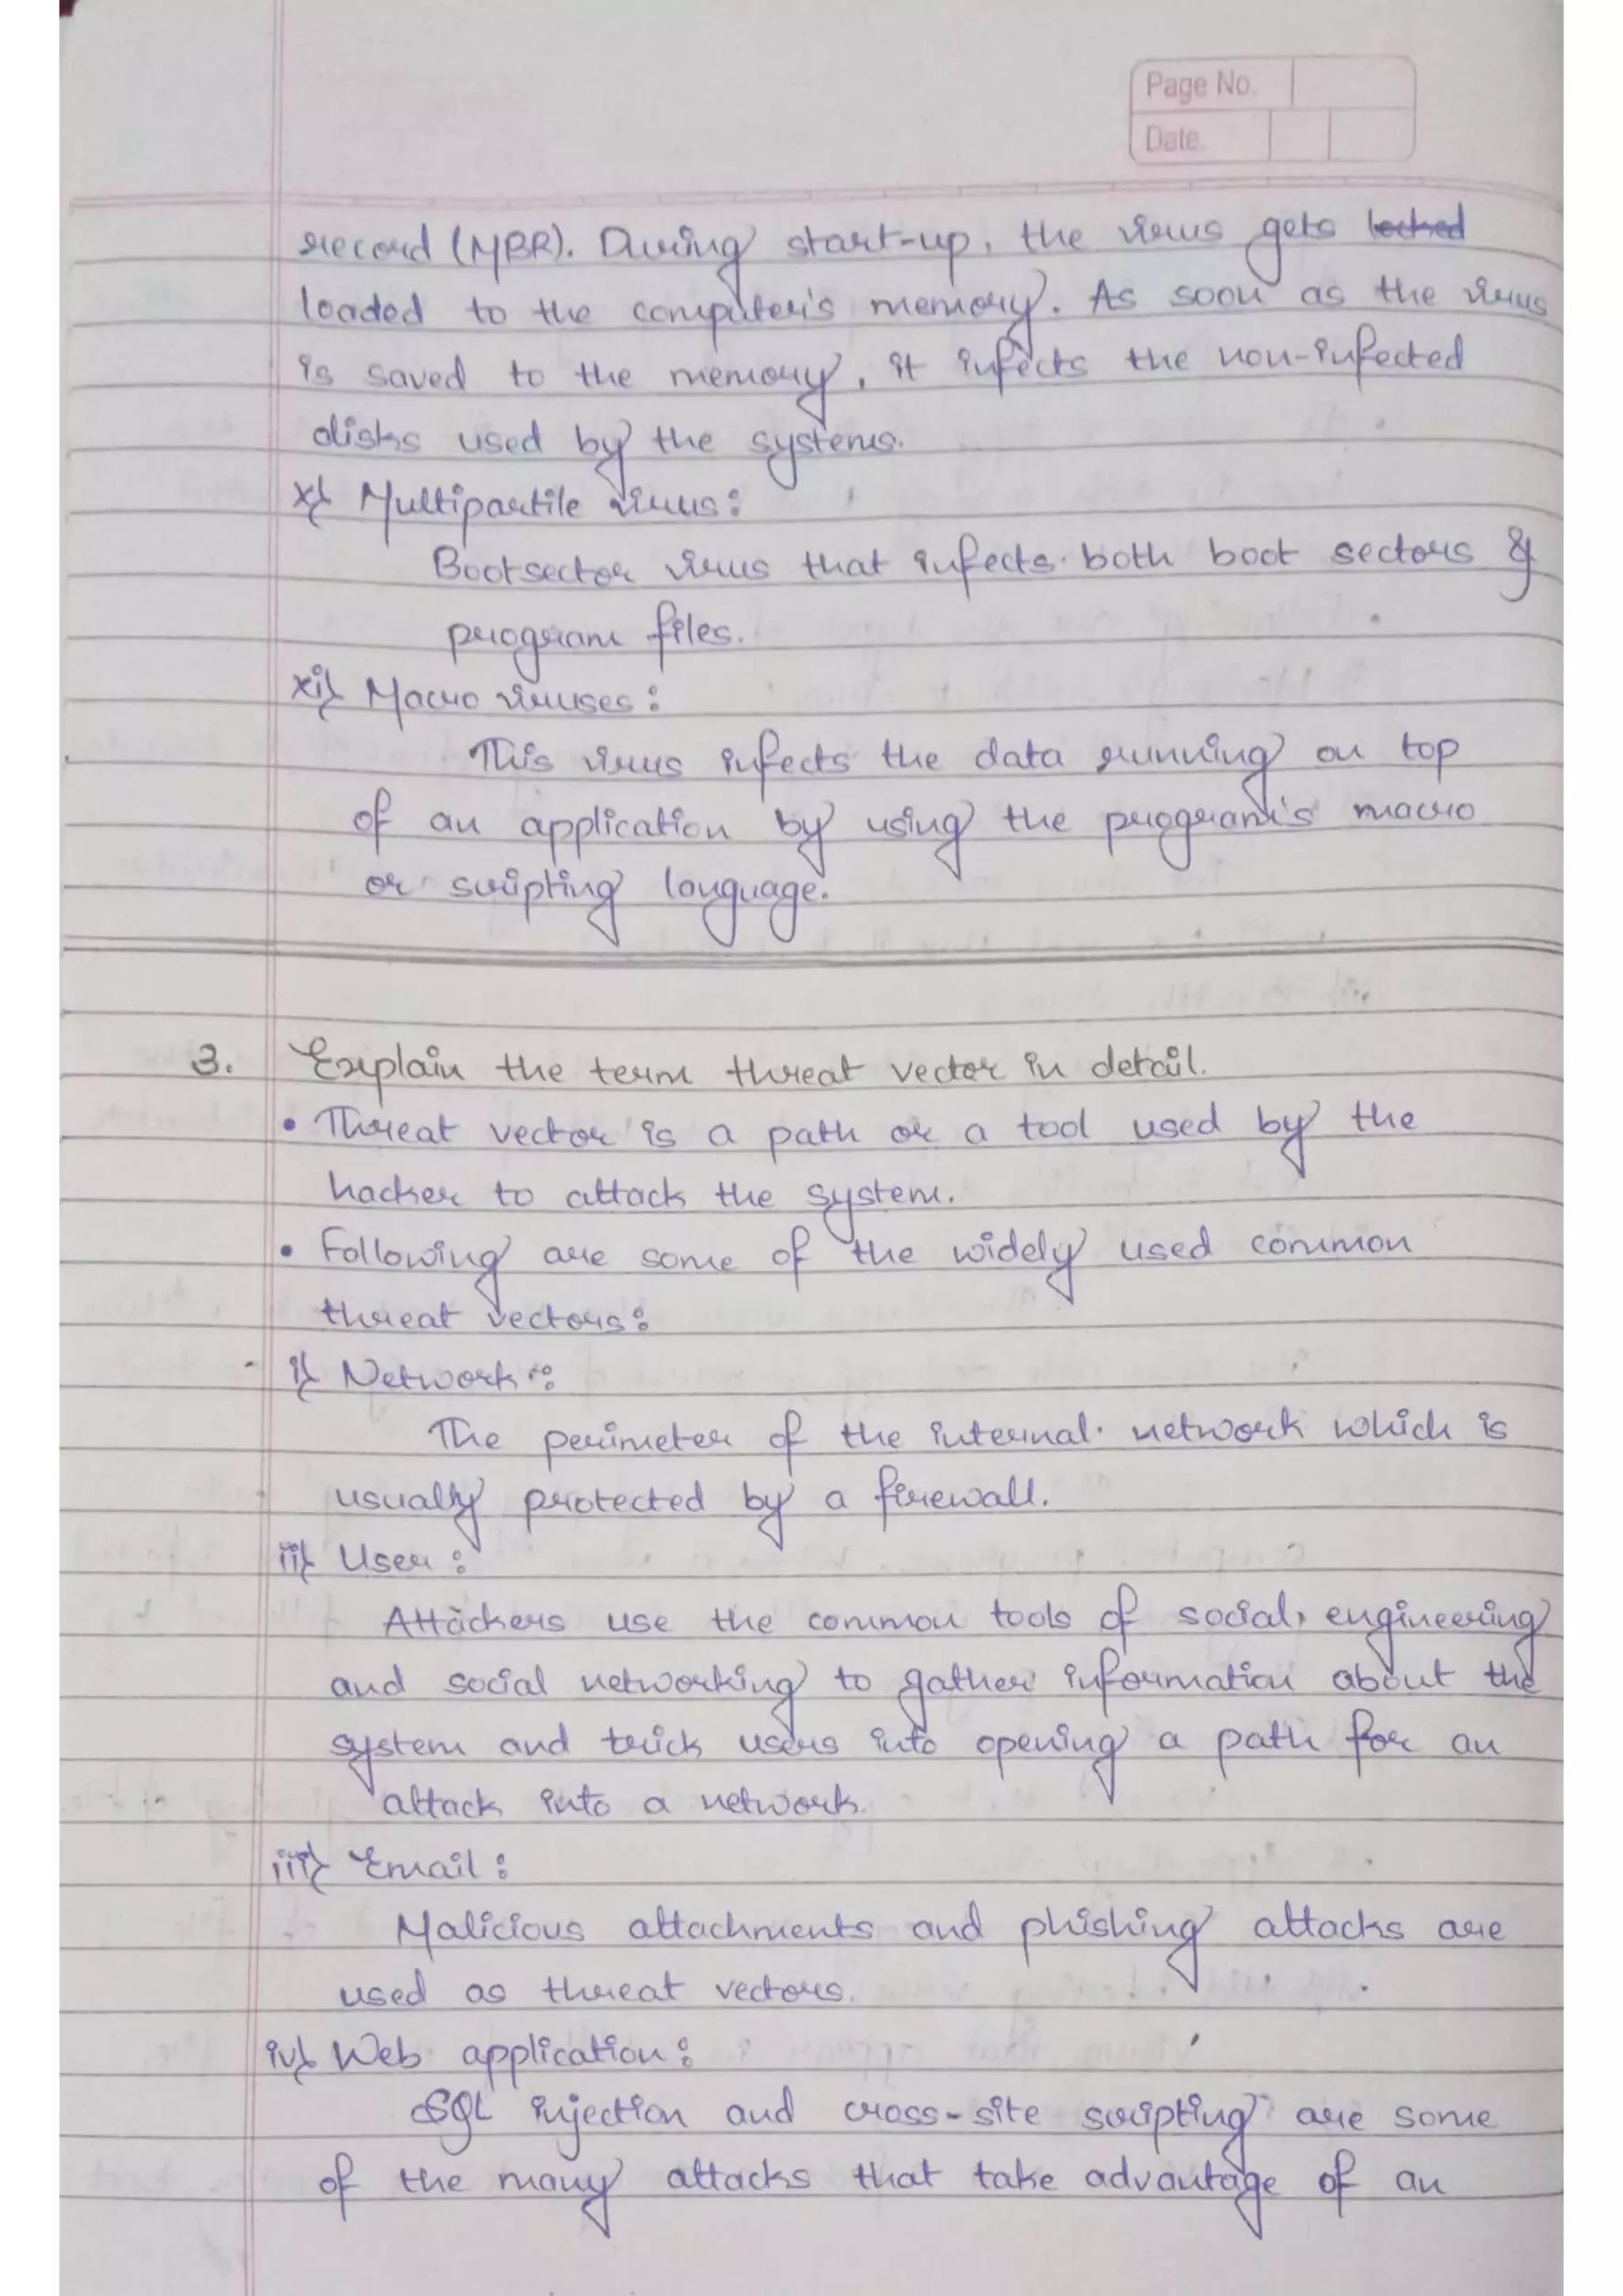 Page No.
Date
record (MBR). During start-up, the virus gets locked
loaded to the computer's memory. As soon as the virus
is saved to the memory, it infects the non-infected
disks used by the systems.
x} Multipartile virus:
Bootsector virus that infects both boot sectors &
program files.
xi} Macro viruses:
This virus infects the data running on top
of an application by using the program's macro
or scripting language.
3. Explain the term threat vector in detail.
• Threat vector is a path or a tool used by the
hacker to attack the system.
• Following are some of the widely used common
threat vectors:
i} Network:
The perimeter of the internal network which is
usually protected by a firewall.
ii} User:
Attackers use the common tools of social engineering
and social networking to gather information about the
system and trick users into opening a path for an
attack into a network.
iii} Email:
Malicious attachments and phishing attacks are
used as threat vectors.
iv} Web application:
SQL injection and cross-site scripting are some
of the many attacks that take advantage of an